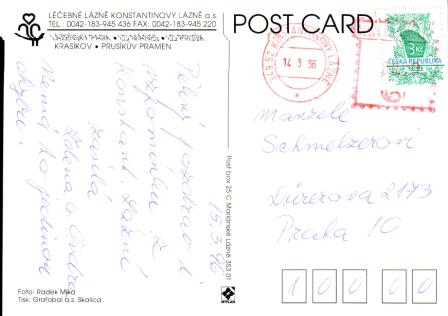 LÉČEBNÉ LÁZNĚ KONSTANTINOVY LÁZNĚ a.s.
TEL. 0042-183-945 436 FAX: 0042-183-945 220
KRASÍKOV • PRUSÍKŮV PRAMEN
Pěkný pozdrav i
vzpomínku z
Konstant. Lázní
zasílá
Zdena a Ondra
Nemá to jedinou
chybu.
15.3.96
Foto: Radek Mika
Tisk: Grafobal a.s. Skalica
Post box 25 C Mariánské Lázně 353 01
POST CARD
349 52 KONSTANTINOVY LÁZNĚ
14 3 96
3 Kč
ČESKÁ REPUBLIKA
Manželé
Schmelzerovi
Dürerova 2173
Praha 10
1 0 0 0 0